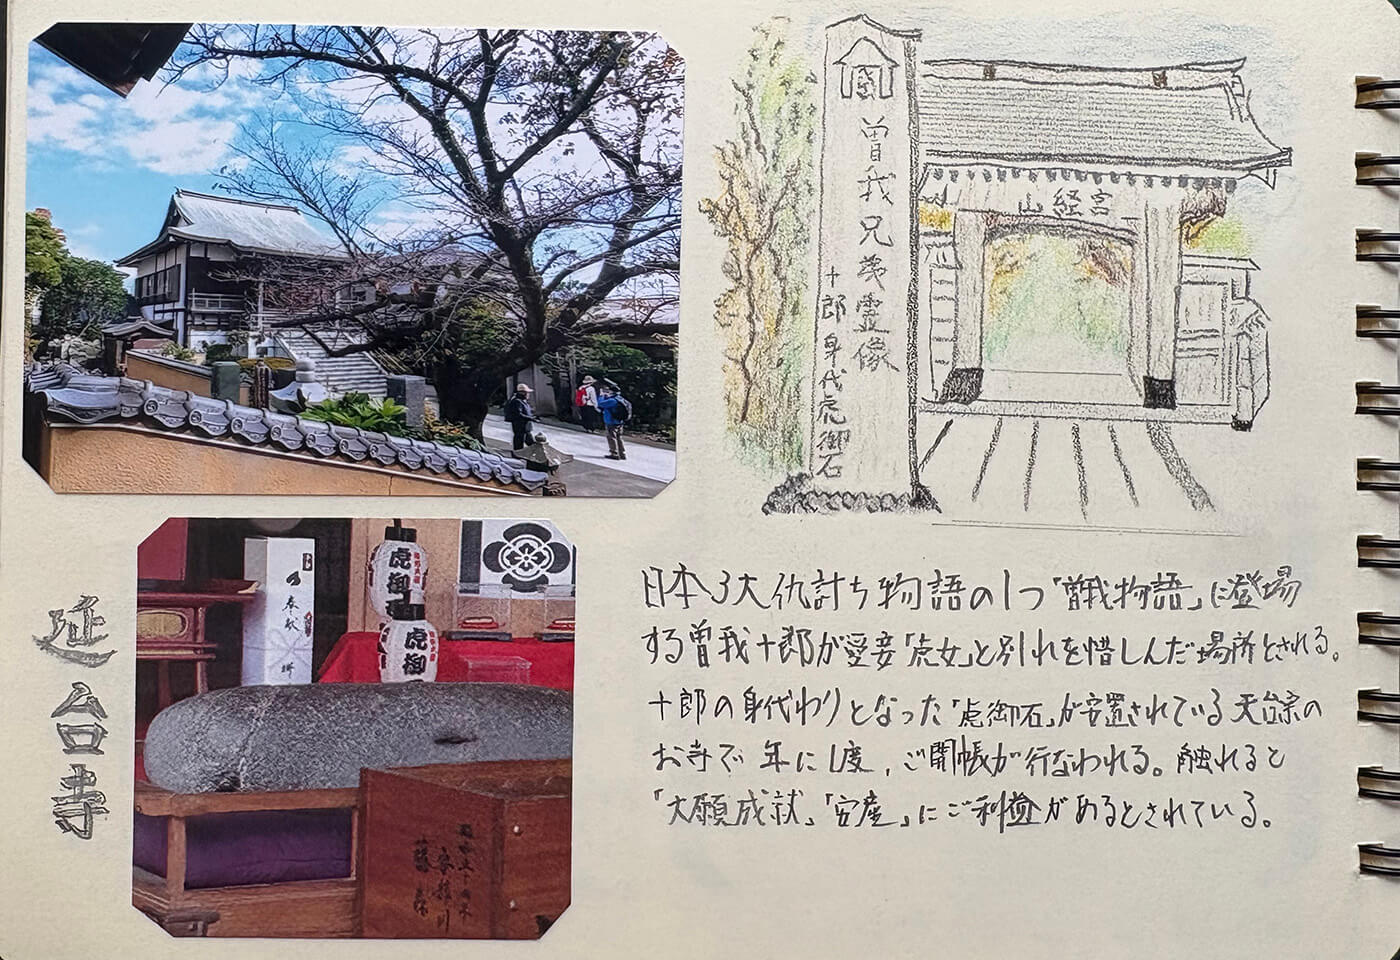 國
曽我兄弟霊像
十郎身代虎御石
山経宮
虎御
虎御
奉献
延台寺
日本3大仇討ち物語の1つ「曽我物語」に登場
する曽我十郎が愛妾「虎女」と別れを惜しんだ場所とされる。
十郎の身代わりとなった「虎御石」が安置されている天台宗の
お寺で 年に1度、ご開帳が行なわれる。触れると
「大願成就」「安産」にご利益があるとされている。